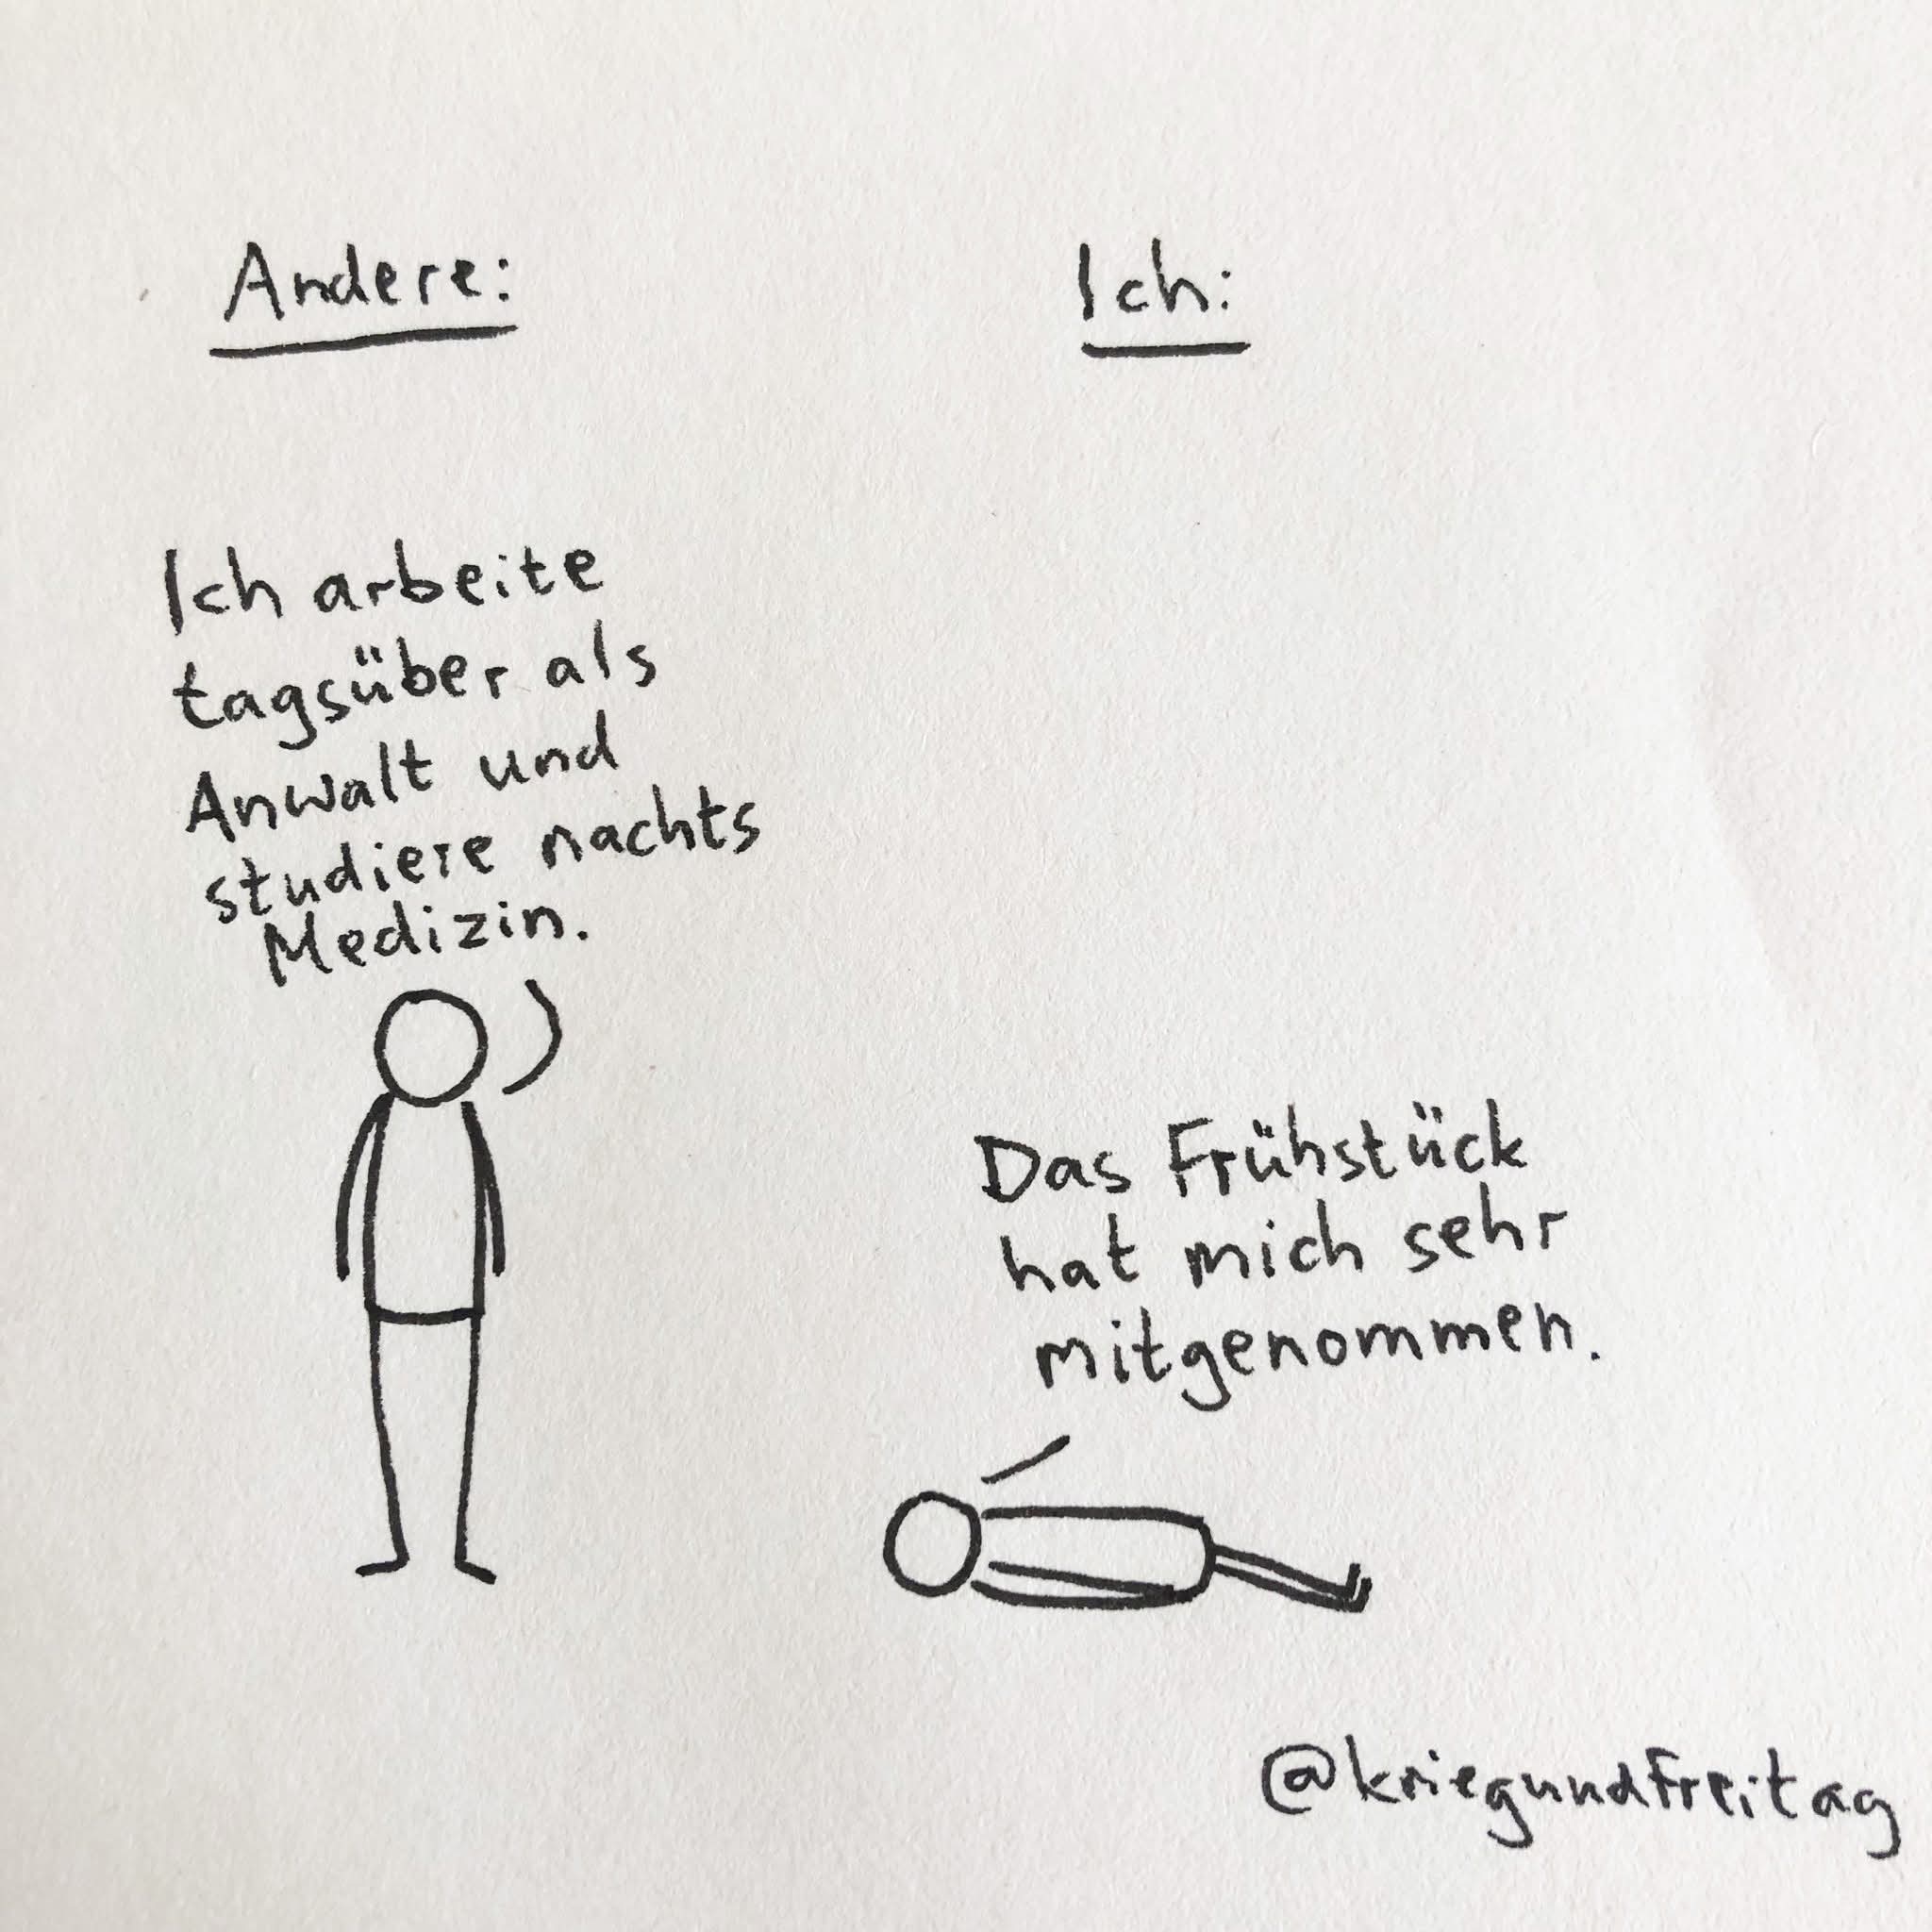 Andere:
Ich arbeite
tagsüber als
Anwalt und
studiere nachts
Medizin.
Ich:
Das Frühstück
hat mich sehr
mitgenommen.
@kriegundfreitag